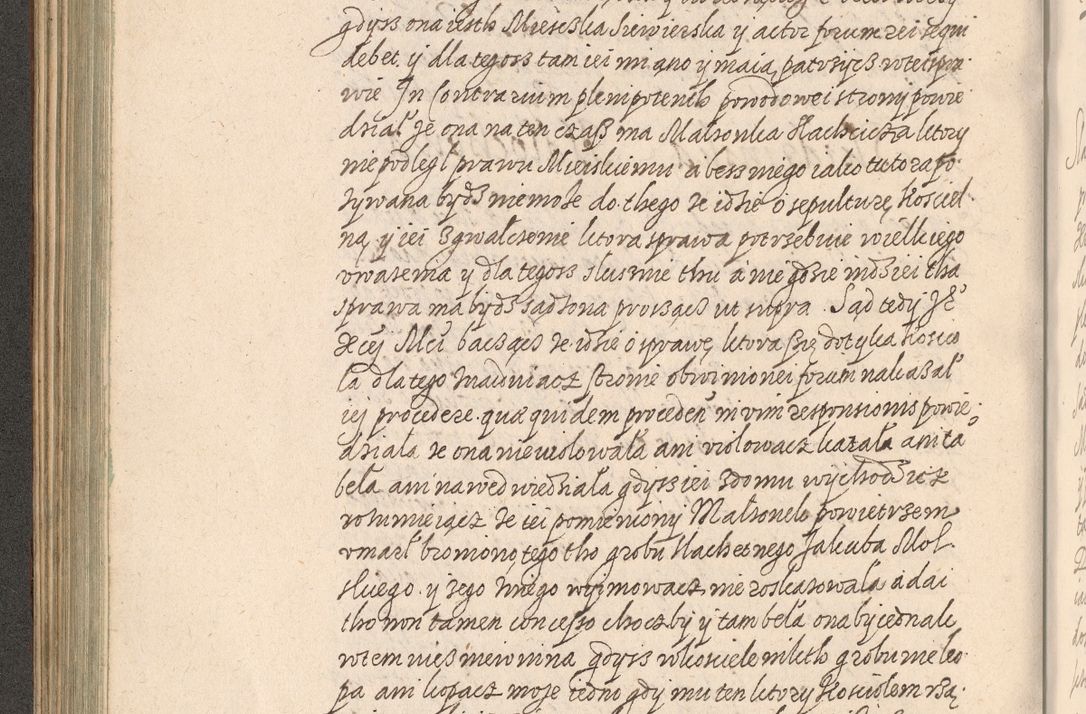 gdysz ona iesth Miesczka Siewierska y actor forum rei sequi
debet y dla tegosz tam iei miano y maią patrzycz w tei spra-
wie In Contrarium plenipotenth powodowei strony powie
dział że ona na ten czasz ma Małzonka Slachcicza ktory
nie podlegl prawu Mieiskiemu a besz niego iako tutora po-
zywana bydz niemoże do thego że idzie o sepulturę Koscie-
ną y iei zgwałczenie ktora sprawa potrzebuie wielkiego
vważenia y dla tegosz slusznie thu a nie gdzie indziei tha
sprawa ma bydz sądzona prosząc ut supra Sąd tedy Je°
Xcej Mci bacząc że idzie o sprawę ktora się dotyka Koscio
ła dla tego znaiduiącz stronie obwinionei forum nakazał
iej procedere quae quidem proceden in vim responsionis powie-
działa że ona niewiolowała ani violowacz kazała ani ta
beła ani nawed wiedziała gdysz iei z domu wychodzicz
rozumieiącz że iei pomieniony Małzonek powietrzem
vmarł broniono tego tho grobu Slachetnego Jakuba Mol-
skiego y Jego z niego wyimowacz nie roskazowała a dai
tho non tamen concesso choczby y tam beła ona by iednak
w tem niesz niewinna gdysz w kosciele nikth grobu nie ko-
pa ani kopacz może iedno gdy mu ten ktory Kosciołem rzą-